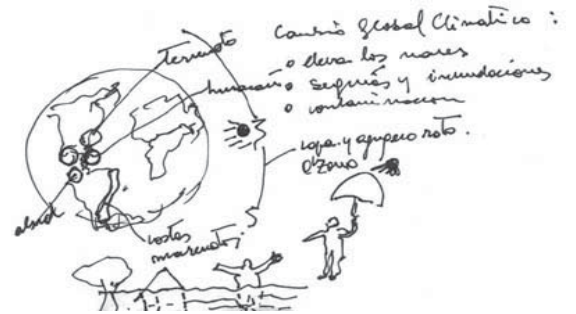 Cambio global Climatico :
o eleva los mares
o sequías y inundaciones
o contaminacion
terremoto
huracan
capa y agujero roto
d'Zono
alud
costas